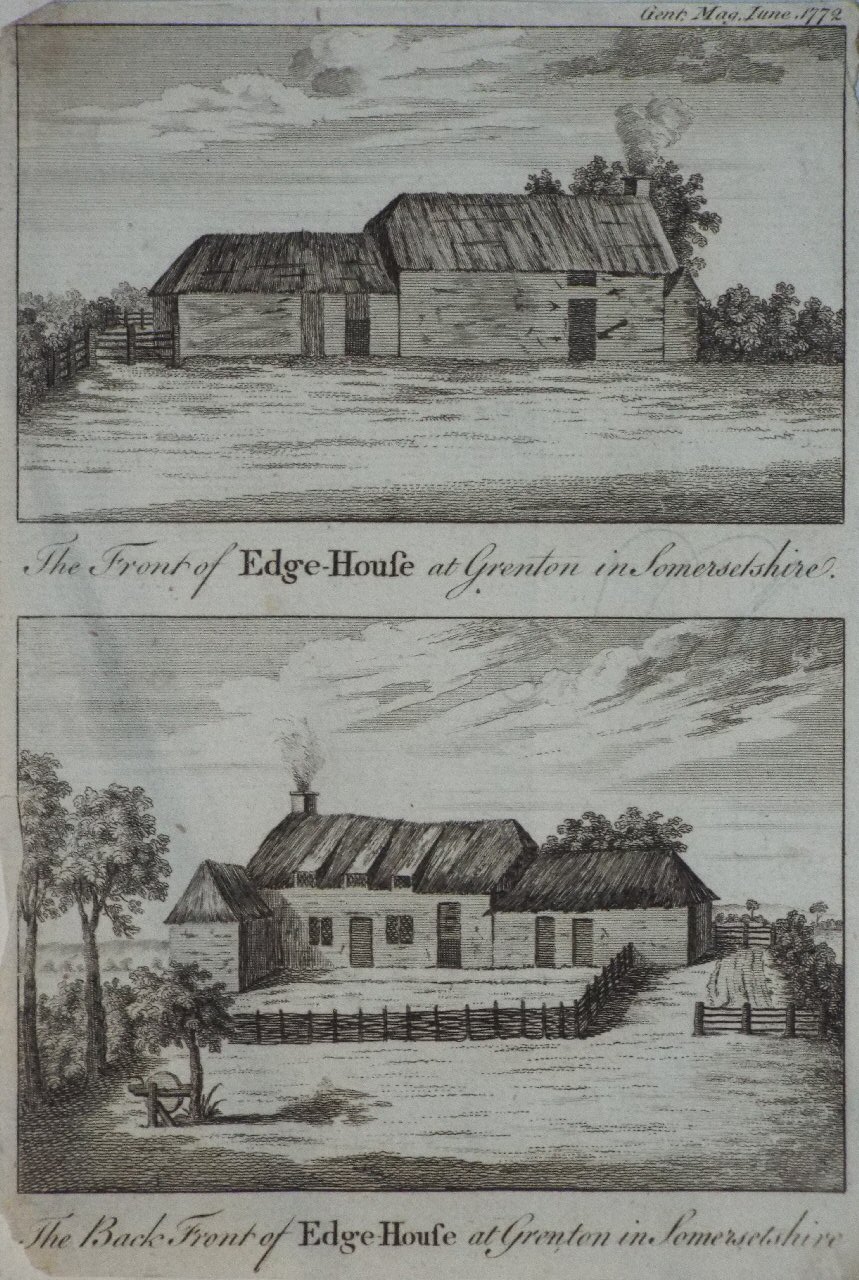 Gent. Mag. June. 1772
The Front of Edge-Houſe at Grenton in Somersetshire.
The Back Front of Edge-Houſe at Grenton in Somersetshire